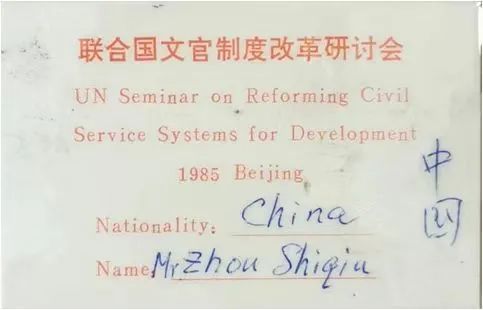 联合国文官制度改革研讨会
UN Seminar on Reforming Civil
Service Systems for Development
1985 Beijing
Nationality: China
中国
Name Mr Zhou Shiqiu